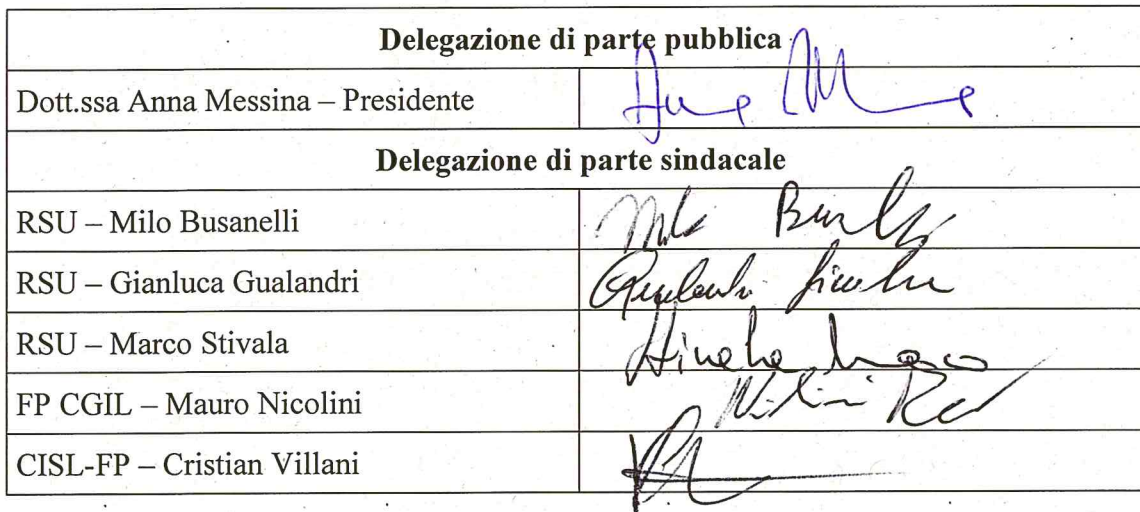 Delegazione di parte pubblica
Dott.ssa Anna Messina – Presidente
Delegazione di parte sindacale
RSU – Milo Busanelli
RSU – Gianluca Gualandri
RSU – Marco Stivala
FP CGIL – Mauro Nicolini
CISL-FP – Cristian Villani